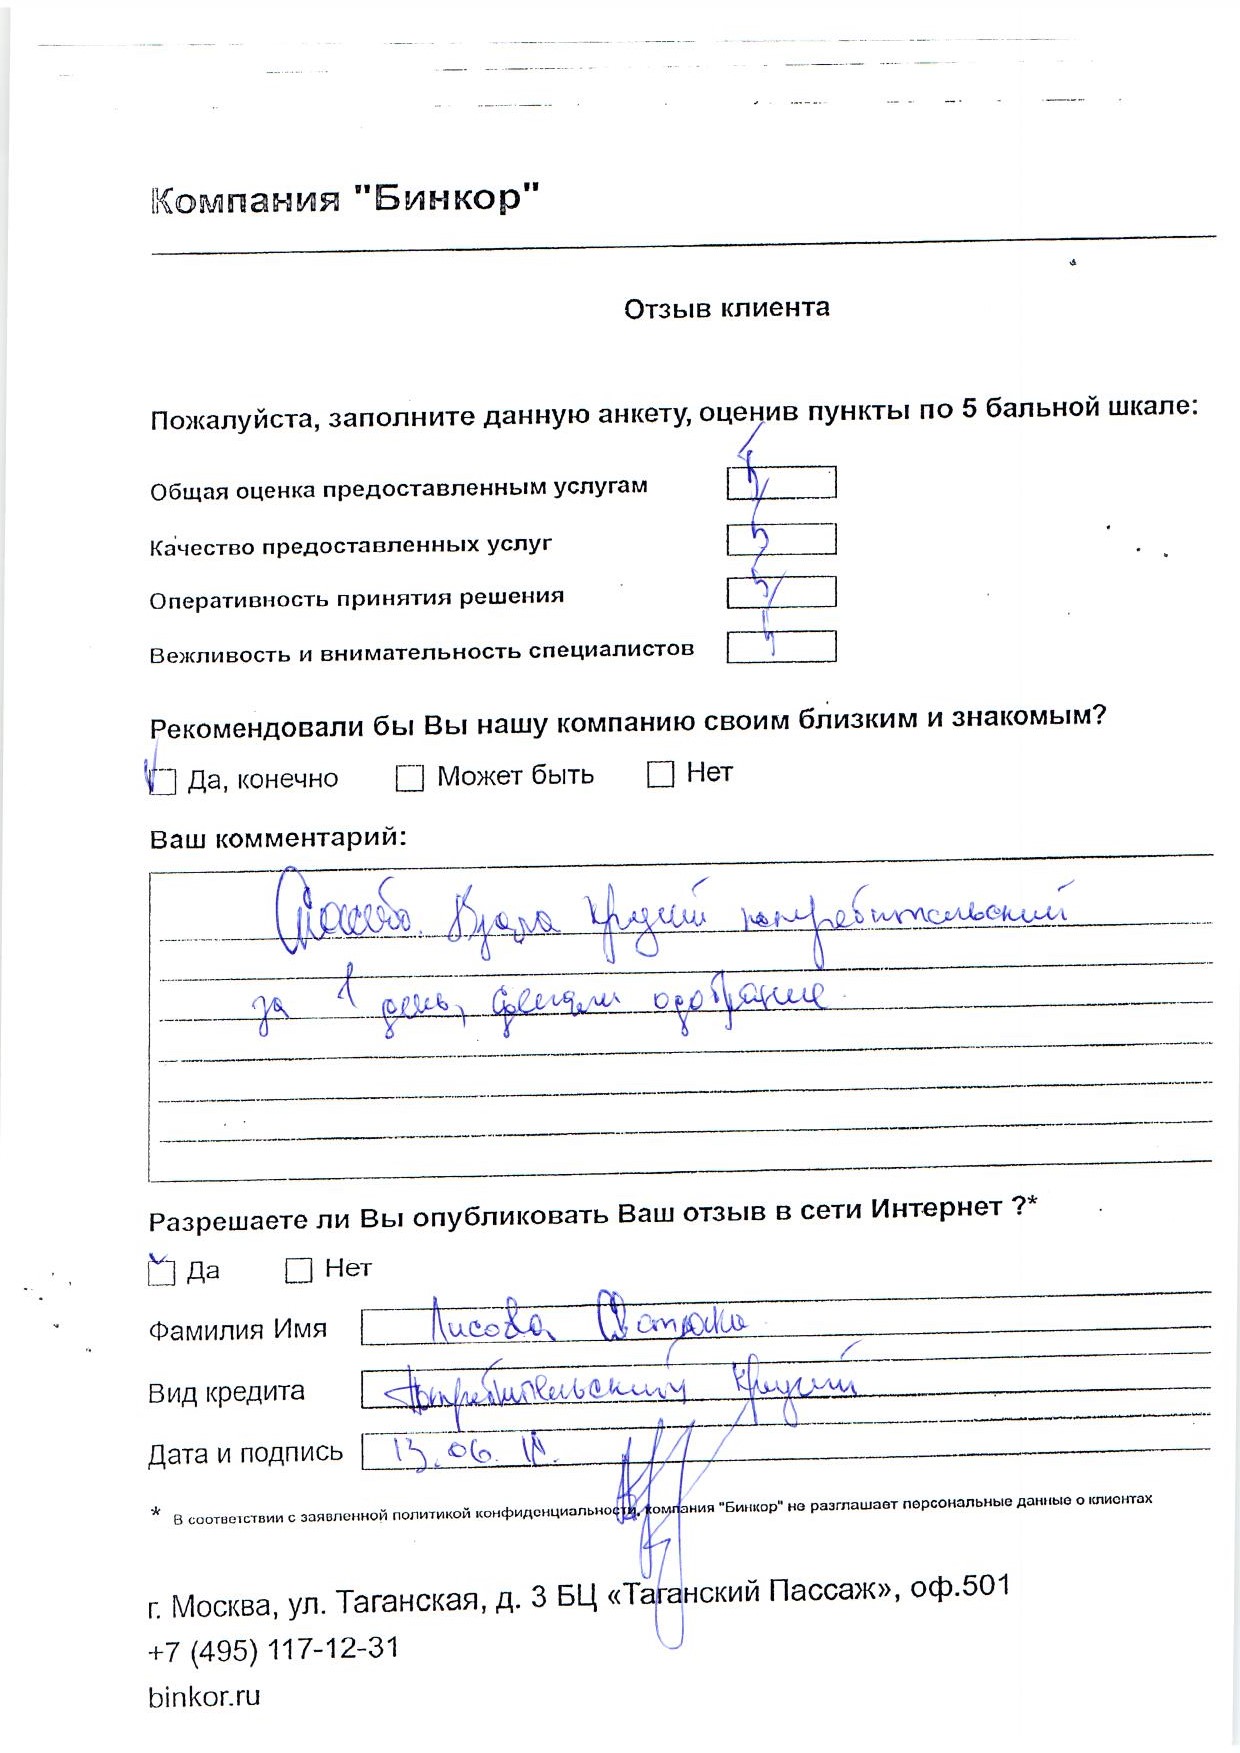 Компания "Бинкор"
Отзыв клиента
Пожалуйста, заполните данную анкету, оценив пункты по 5 бальной шкале:
Общая оценка предоставленным услугам 5
Качество предоставленных услуг 5
Оперативность принятия решения 5
Вежливость и внимательность специалистов 5
Рекомендовали бы Вы нашу компанию своим близким и знакомым?
Да, конечно Может быть Нет
Ваш комментарий:
Спасибо. Взяла кредит потребительский
за 1 день, сделали одобрение
Разрешаете ли Вы опубликовать Ваш отзыв в сети Интернет ?*
Да Нет
Фамилия Имя Лисова
Вид кредита Потребительский кредит
Дата и подпись 13.06.
* В соответствии с заявленной политикой конфиденциальности, компания "Бинкор" не разглашает персональные данные о клиентах
г. Москва, ул. Таганская, д. 3 БЦ «Таганский Пассаж», оф.501
+7 (495) 117-12-31
binkor.ru